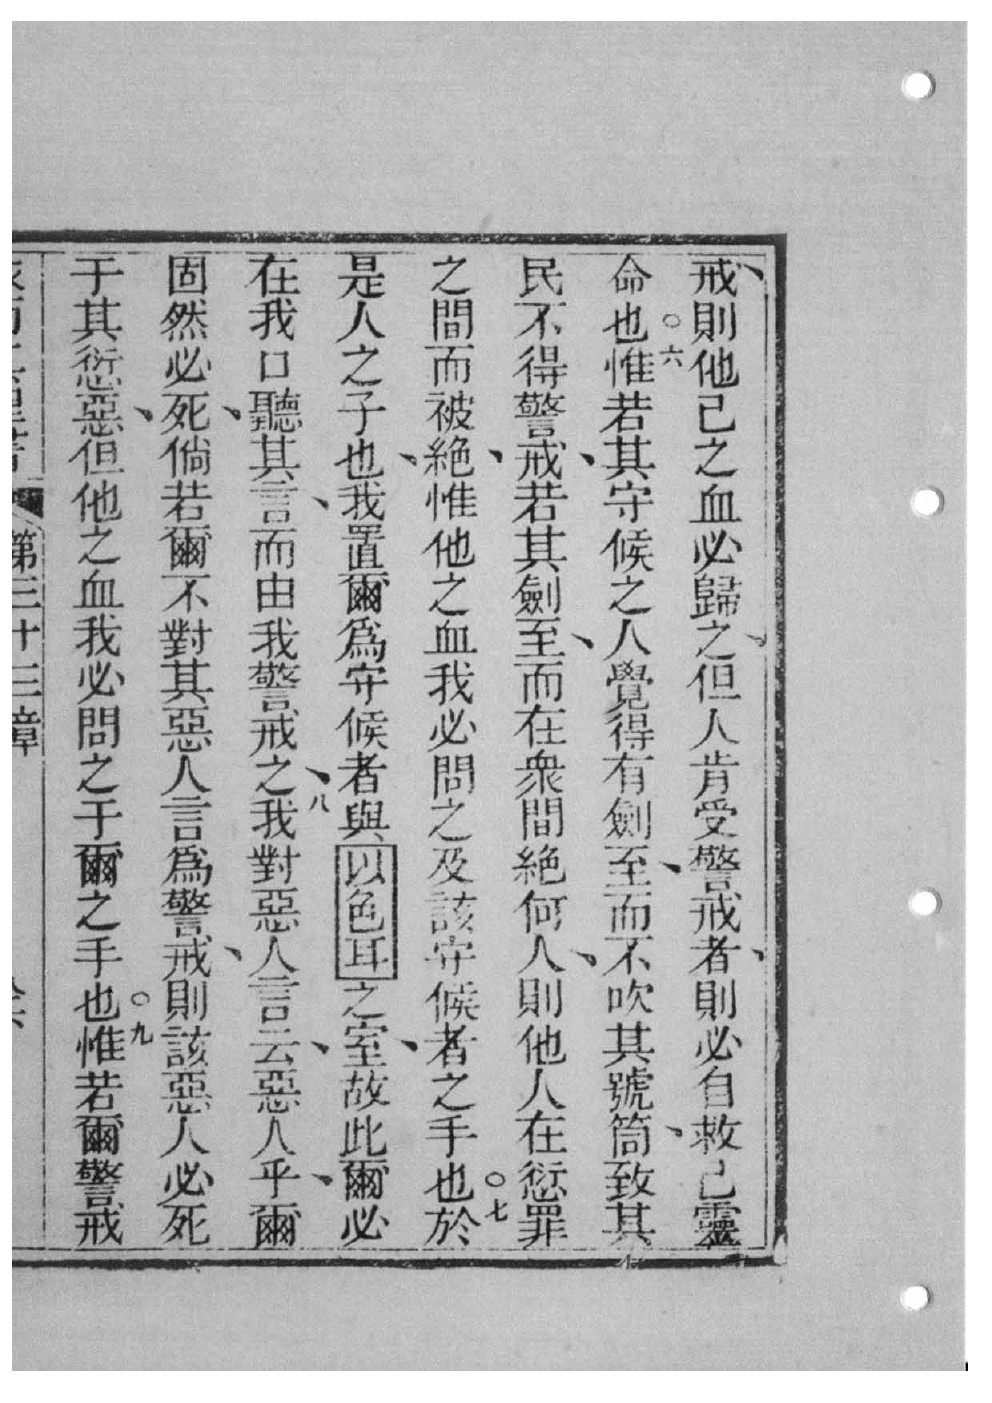 戒則他己之血必歸之但人肯受警戒者則必自救己靈
命也○六惟若其守候之人覺得有劍至而不吹其號筒致其
民不得警戒若其劍至而在衆間絶何人則他人在愆罪
之間而被絶惟他之血我必問之及該守候者之手也○七於
是人之子也我置爾爲守候者與以色耳之室故此爾必
在我口聽其言而由我警戒之八我對惡人言云惡人乎爾
固然必死倘若爾不對其惡人言爲警戒則該惡人必死
于其愆惡但他之血我必問之于爾之手也○九惟若爾警戒
第三十三章